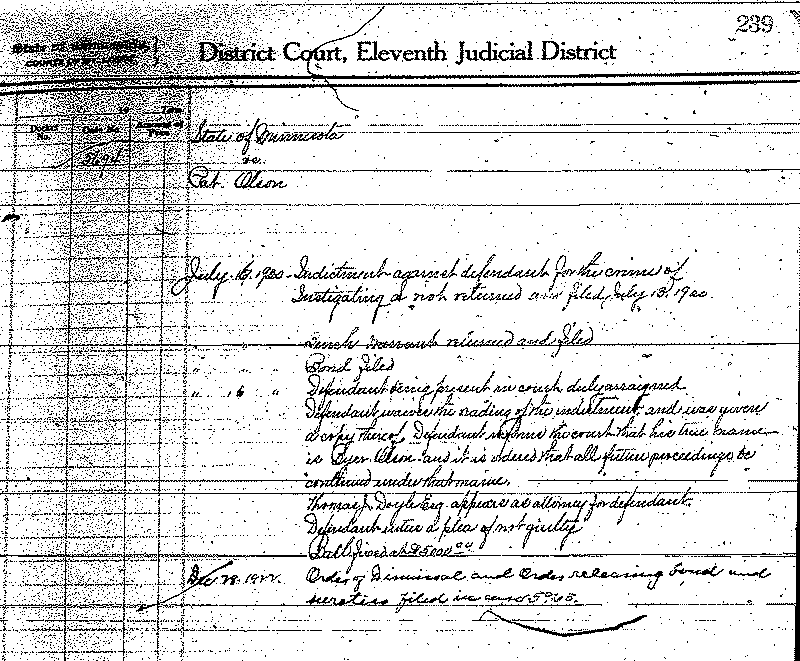 239
District Court, Eleventh Judicial District
Docket No.
Case No.
State of Minnesota
vs.
Pat. Olson
July 1920 Indictment against defendant for the crime of
Instigating a riot returned and filed July 13, 1920
Bench warrant returned and filed
" " Bond filed
" 16 " Defendant being present in court duly arraigned
Defendant waives the reading of the indictment, and was given
a copy thereof. Defendant informs the court that his true name
is Olson and it is ordered that all future proceedings be
continued under that name.
Thomas J. Doyle Esq appears as attorney for defendant.
Defendant enters a plea of not guilty
Bail fixed at $5000 00
Dec 28. 1922. Order of Dismissal and Order releasing bond and
sureties filed in case